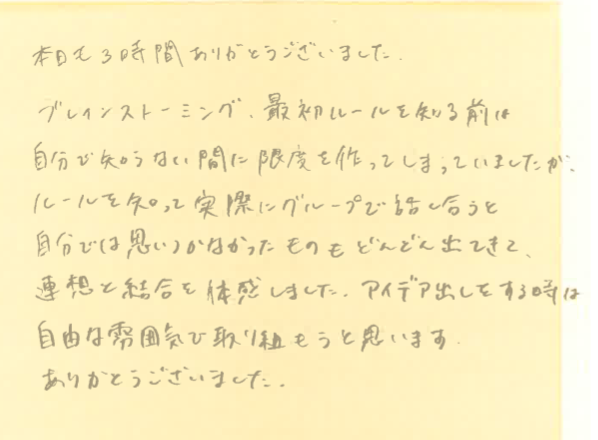 本日も3時間ありがとうございました.
ブレインストーミング、最初ルールを知る前は
自分で知らない間に限度を作ってしまっていましたが、
ルールを知って実際にグループで話し合うと
自分では思いつかなかったものもどんどん出てきて、
連想と結合を体感しました. アイデア出しをする時は
自由な雰囲気で取り組もうと思います.
ありがとうございました.